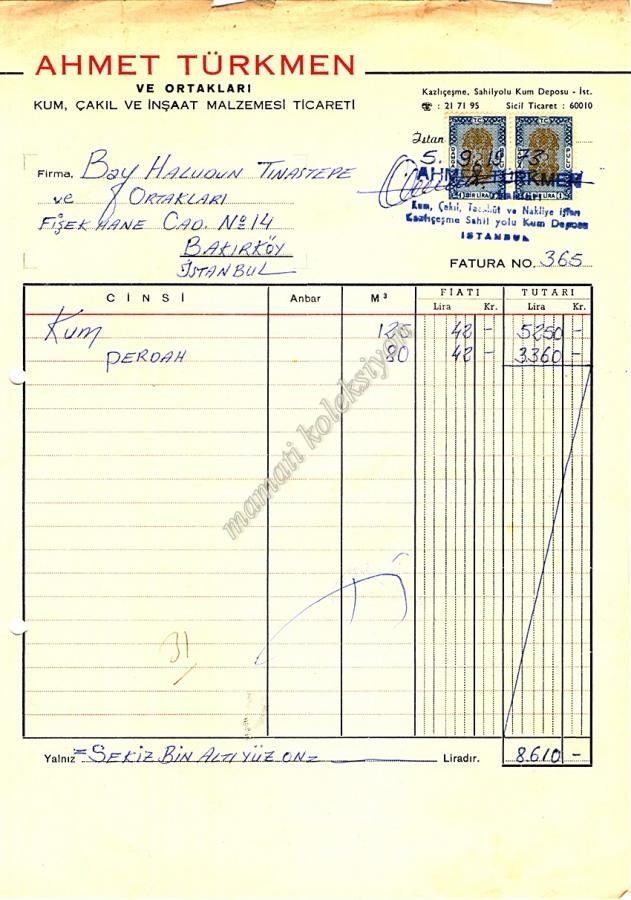 AHMET TÜRKMEN
VE ORTAKLARI
KUM, ÇAKIL VE İNŞAAT MALZEMESİ TİCARETİ
Kazlıçeşme, Sahilyolu Kum Deposu - İst.
☎ : 21 71 95 Sicil Ticaret : 60010
İstan
5. 9. 19 73
AHMET TÜRKMEN
Kum, Çakıl, Taahhüt ve Nakliye İşleri
Kazlıçeşme Sahil yolu Kum Deposu
İSTANBUL
TC
BİR LİRA
LİRA 1
Firma, Bay HALUDUN TINASTEPE
ve ORTAKLARI
FİŞEKHANE CAD. No 14
BAKIRKÖY
İSTANBUL
FATURA NO. 365
CİNSİ Anbar M³ FİATI TUTARI
Lira Kr. Lira Kr.
Kum 125 42 - 5250 -
PERDAH 80 42 - 3360 -
mamati koleksiyon
31
Yalnız = SEKİZ BİN ALTIYÜZ ON = Liradır. 8610 -